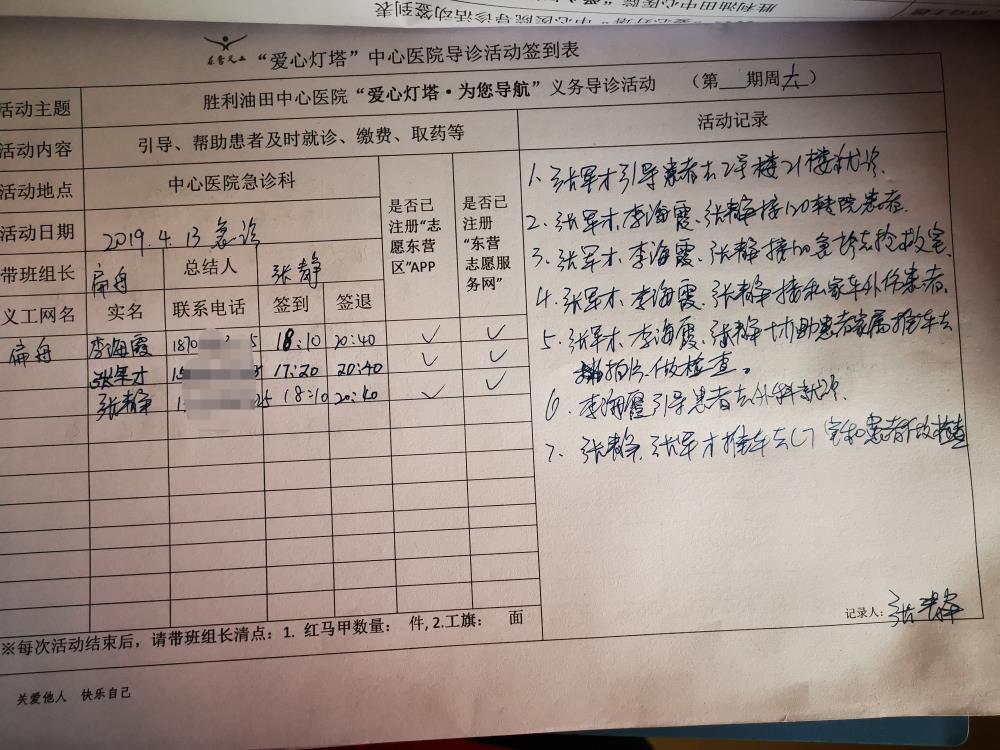 胜利油田中心医院“爱心灯塔
中心医院导诊活动签到表
乐善义工
“爱心灯塔”中心医院导诊活动签到表
活动主题 胜利油田中心医院“爱心灯塔·为您导航”义务导诊活动 （第__期周六）
活动内容 引导、帮助患者及时就诊、缴费、取药等 活动记录
活动地点 中心医院急诊科
是否已注册“志愿东营区”APP
是否已注册“东营志愿服务网”
活动日期 2019.4.13 急诊
带班组长 扁舟 总结人 张静
义工网名 实名 联系电话 签到 签退
扁舟 李海霞 1870 5 18:10 20:40 ✓ ✓
张军才 15 17:20 20:40 ✓ ✓
张静 1 25 18:10 20:40 ✓ ✓
1、张军才引导患者去2号楼21楼就诊.
2、张军才、李海霞、张静接120转院患者.
3、张军才、李海霞、张静接120急诊去抢救室.
4、张军才、李海霞、张静接私家车外伤患者.
5、张军才、李海霞、张静协助患者家属推车去
拍片做检查。
6、李海霞引导患者去外科就诊.
7、张静、张军才推车去CT室和患者做检查
记录人：张静
※每次活动结束后，请带班组长清点：1. 红马甲数量： 件,2.工旗： 面
关爱他人 快乐自己